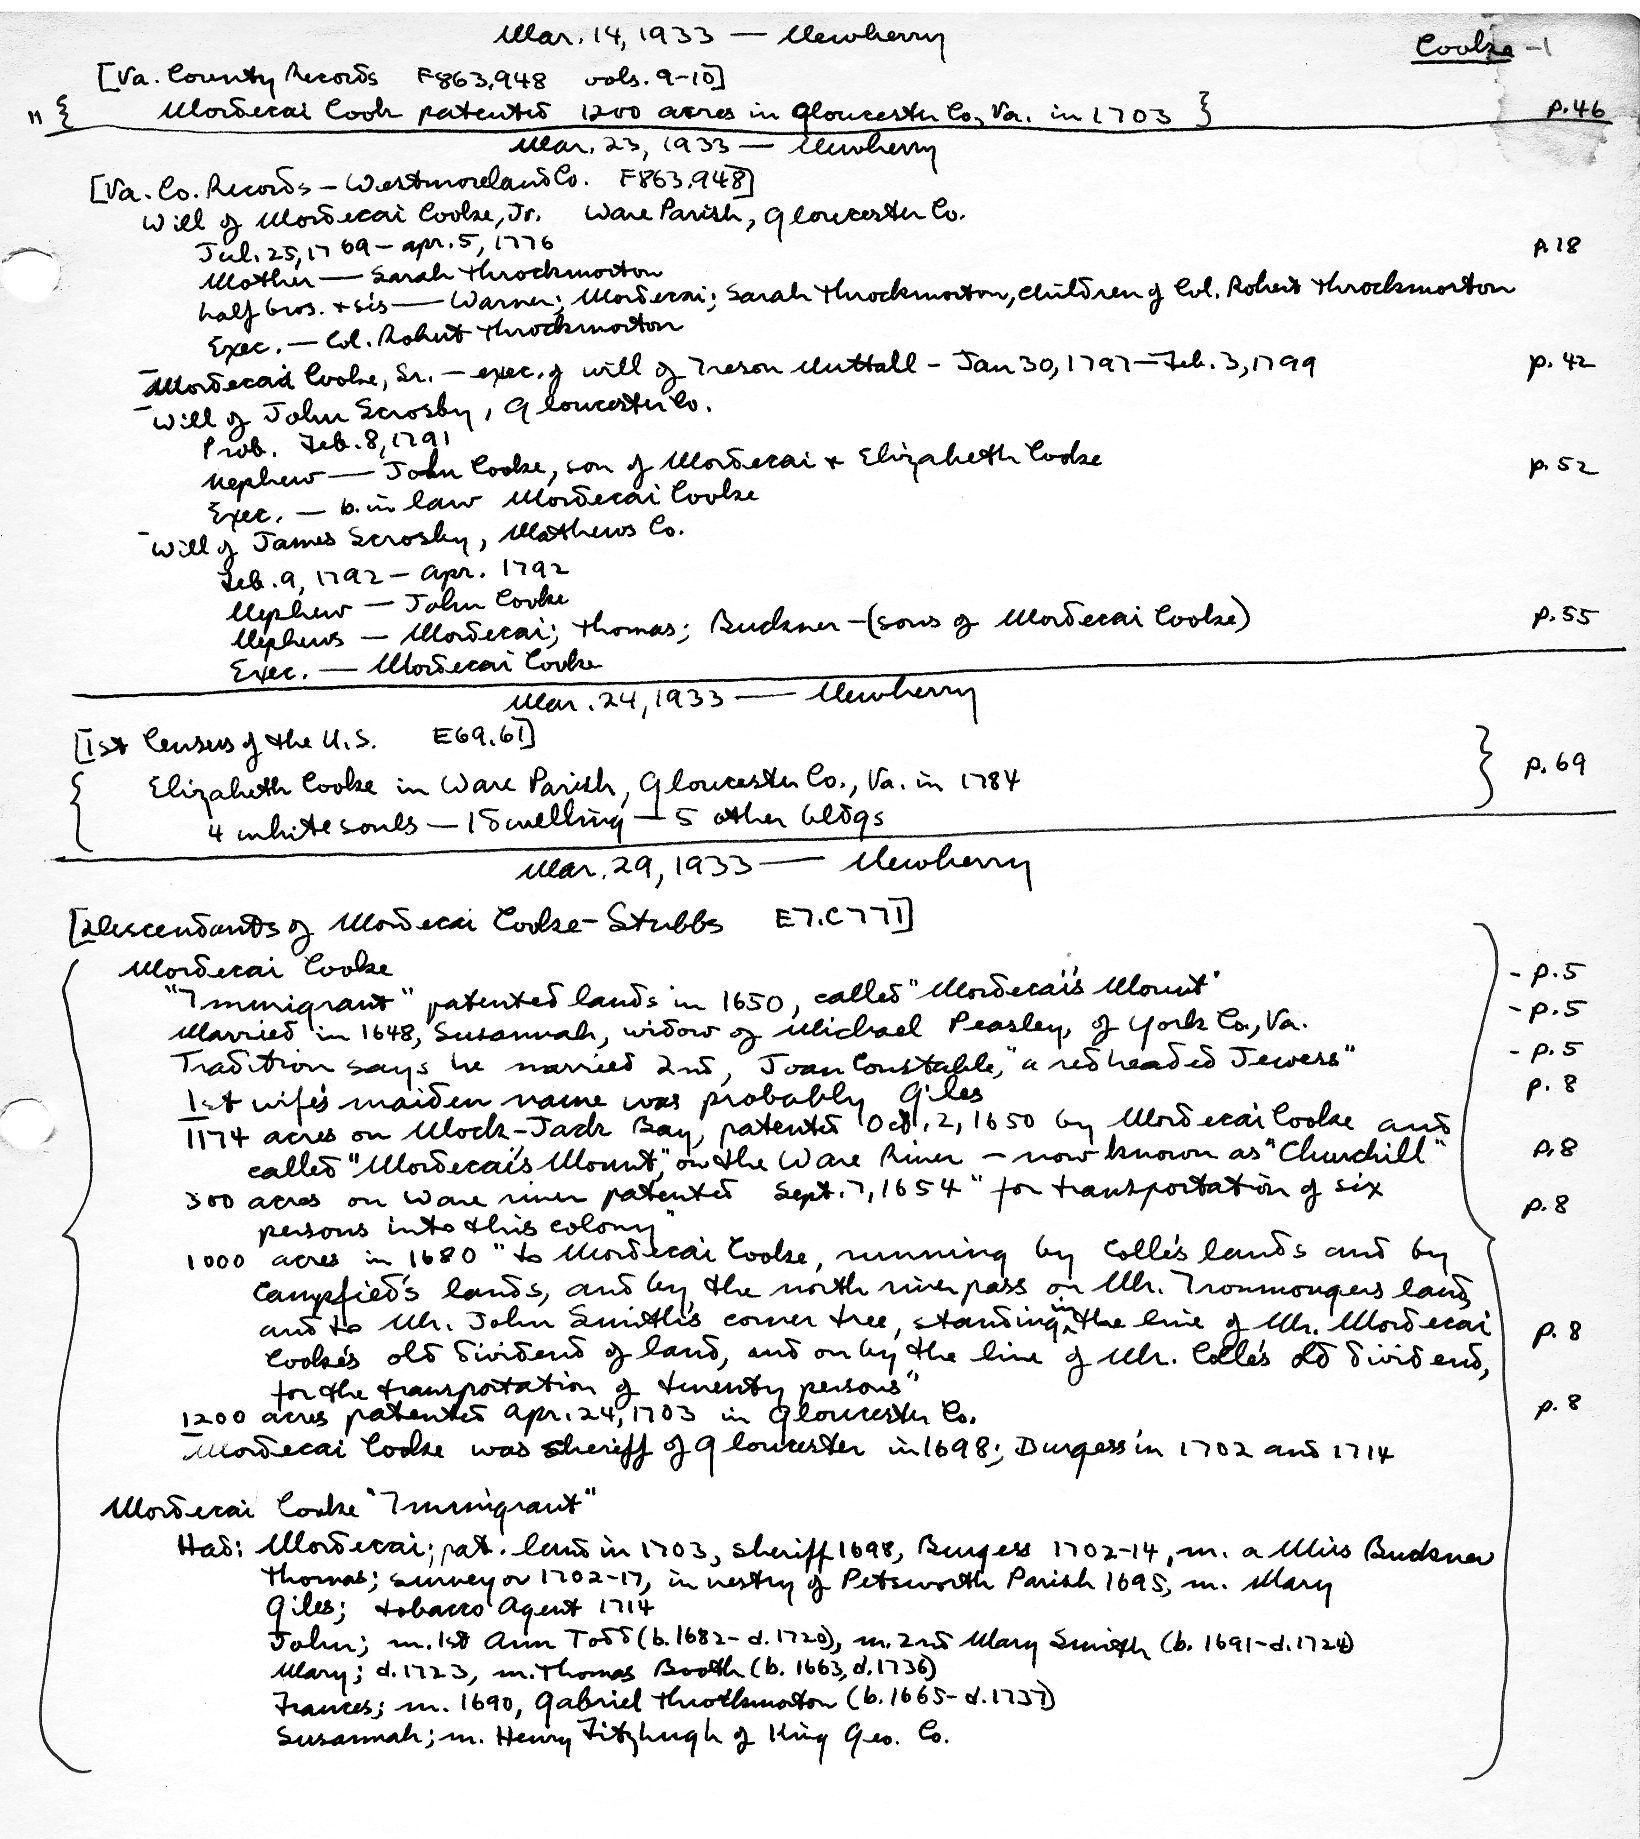 Mar. 14, 1933 — Newberry
Cooke - 1
[Va. County Records F863.948 vols. 9-10]
" { Mordecai Cook patented 1200 acres in Gloucester Co., Va. in 1703 } p. 46
Mar. 23, 1933 — Newberry
[Va. Co. Records - Westmoreland Co. F863.948]
Will of Mordecai Cooke, Jr. Ware Parish, Gloucester Co.
Jul. 25, 1769 - Apr. 5, 1776 p. 18
Mother — Sarah Throckmorton
half bros. + sis — Warner; Mordecai; Sarah Throckmorton, children of Col. Robert Throckmorton
Exec. — Col. Robert Throckmorton
- Mordecai Cooke, Sr. - exec. of will of Ireson Nuttall - Jan 30, 1797 - Feb. 3, 1799 p. 42
- Will of John Scrosby, Gloucester Co.
Prob. Feb. 8, 1791
Nephew — John Cooke, son of Mordecai + Elizabeth Cooke p. 52
Exec. — b. in law Mordecai Cooke
- Will of James Scrosby, Mathews Co.
Feb. 9, 1792 - Apr. 1792
Nephew — John Cooke
Nephews — Mordecai; Thomas; Buckner - (sons of Mordecai Cooke) p. 55
Exec. — Mordecai Cooke
Mar. 24, 1933 — Newberry
[1st Census of the U.S. E69.61]
Elizabeth Cooke in Ware Parish, Gloucester Co., Va. in 1784 p. 69
4 white souls — 1 dwelling — 5 other bldgs
Mar. 29, 1933 — Newberry
[Descendants of Mordecai Cooke - Stubbs E7.C771]
Mordecai Cooke
"Immigrant" patented lands in 1650, called "Mordecai's Mount" - p. 5
Married in 1648, Susannah, widow of Michael Peasley, of York Co., Va. - p. 5
Tradition says he married 2nd, Joan Constable, "a redheaded Jewess" - p. 5
1st wife's maiden name was probably Giles p. 8
1174 acres on Mock-Jack Bay, patented Oct. 2, 1650 by Mordecai Cooke and
called "Mordecai's Mount," on the Ware River - now known as "Churchill" p. 8
300 acres on Ware river patented Sept. 7, 1654 "for transportation of six
persons into this colony" p. 8
1000 acres in 1680 "to Mordecai Cooke, running by Colle's lands and by
Campfied's lands, and by the north river pass on Mr. Ironmongers land,
and to Mr. John Smith's corner tree, standing in the line of Mr. Mordecai
Cooke's old dividend of land, and on by the line of Mr. Colle's old dividend, p. 8
for the transportation of twenty persons"
1200 acres patented Apr. 24, 1703 in Gloucester Co. p. 8
Mordecai Cooke was sheriff of Gloucester in 1698; Burgess in 1702 and 1714
Mordecai Cooke "Immigrant"
Had: Mordecai; pat. land in 1703, sheriff 1698, Burgess 1702-14, m. a Miss Buckner
Thomas; surveyor 1702-17, in vestry of Petsworth Parish 1695, m. Mary
Giles; tobacco Agent 1714
John; m. 1st Ann Todd (b. 1682 - d. 1720), m. 2nd Mary Smith (b. 1691 - d. 1724)
Mary; d. 1723, m. Thomas Booth (b. 1663, d. 1736)
Frances; m. 1690, Gabriel Throckmorton (b. 1665 - d. 1737)
Susannah; m. Henry Fitzhugh of King Geo. Co.